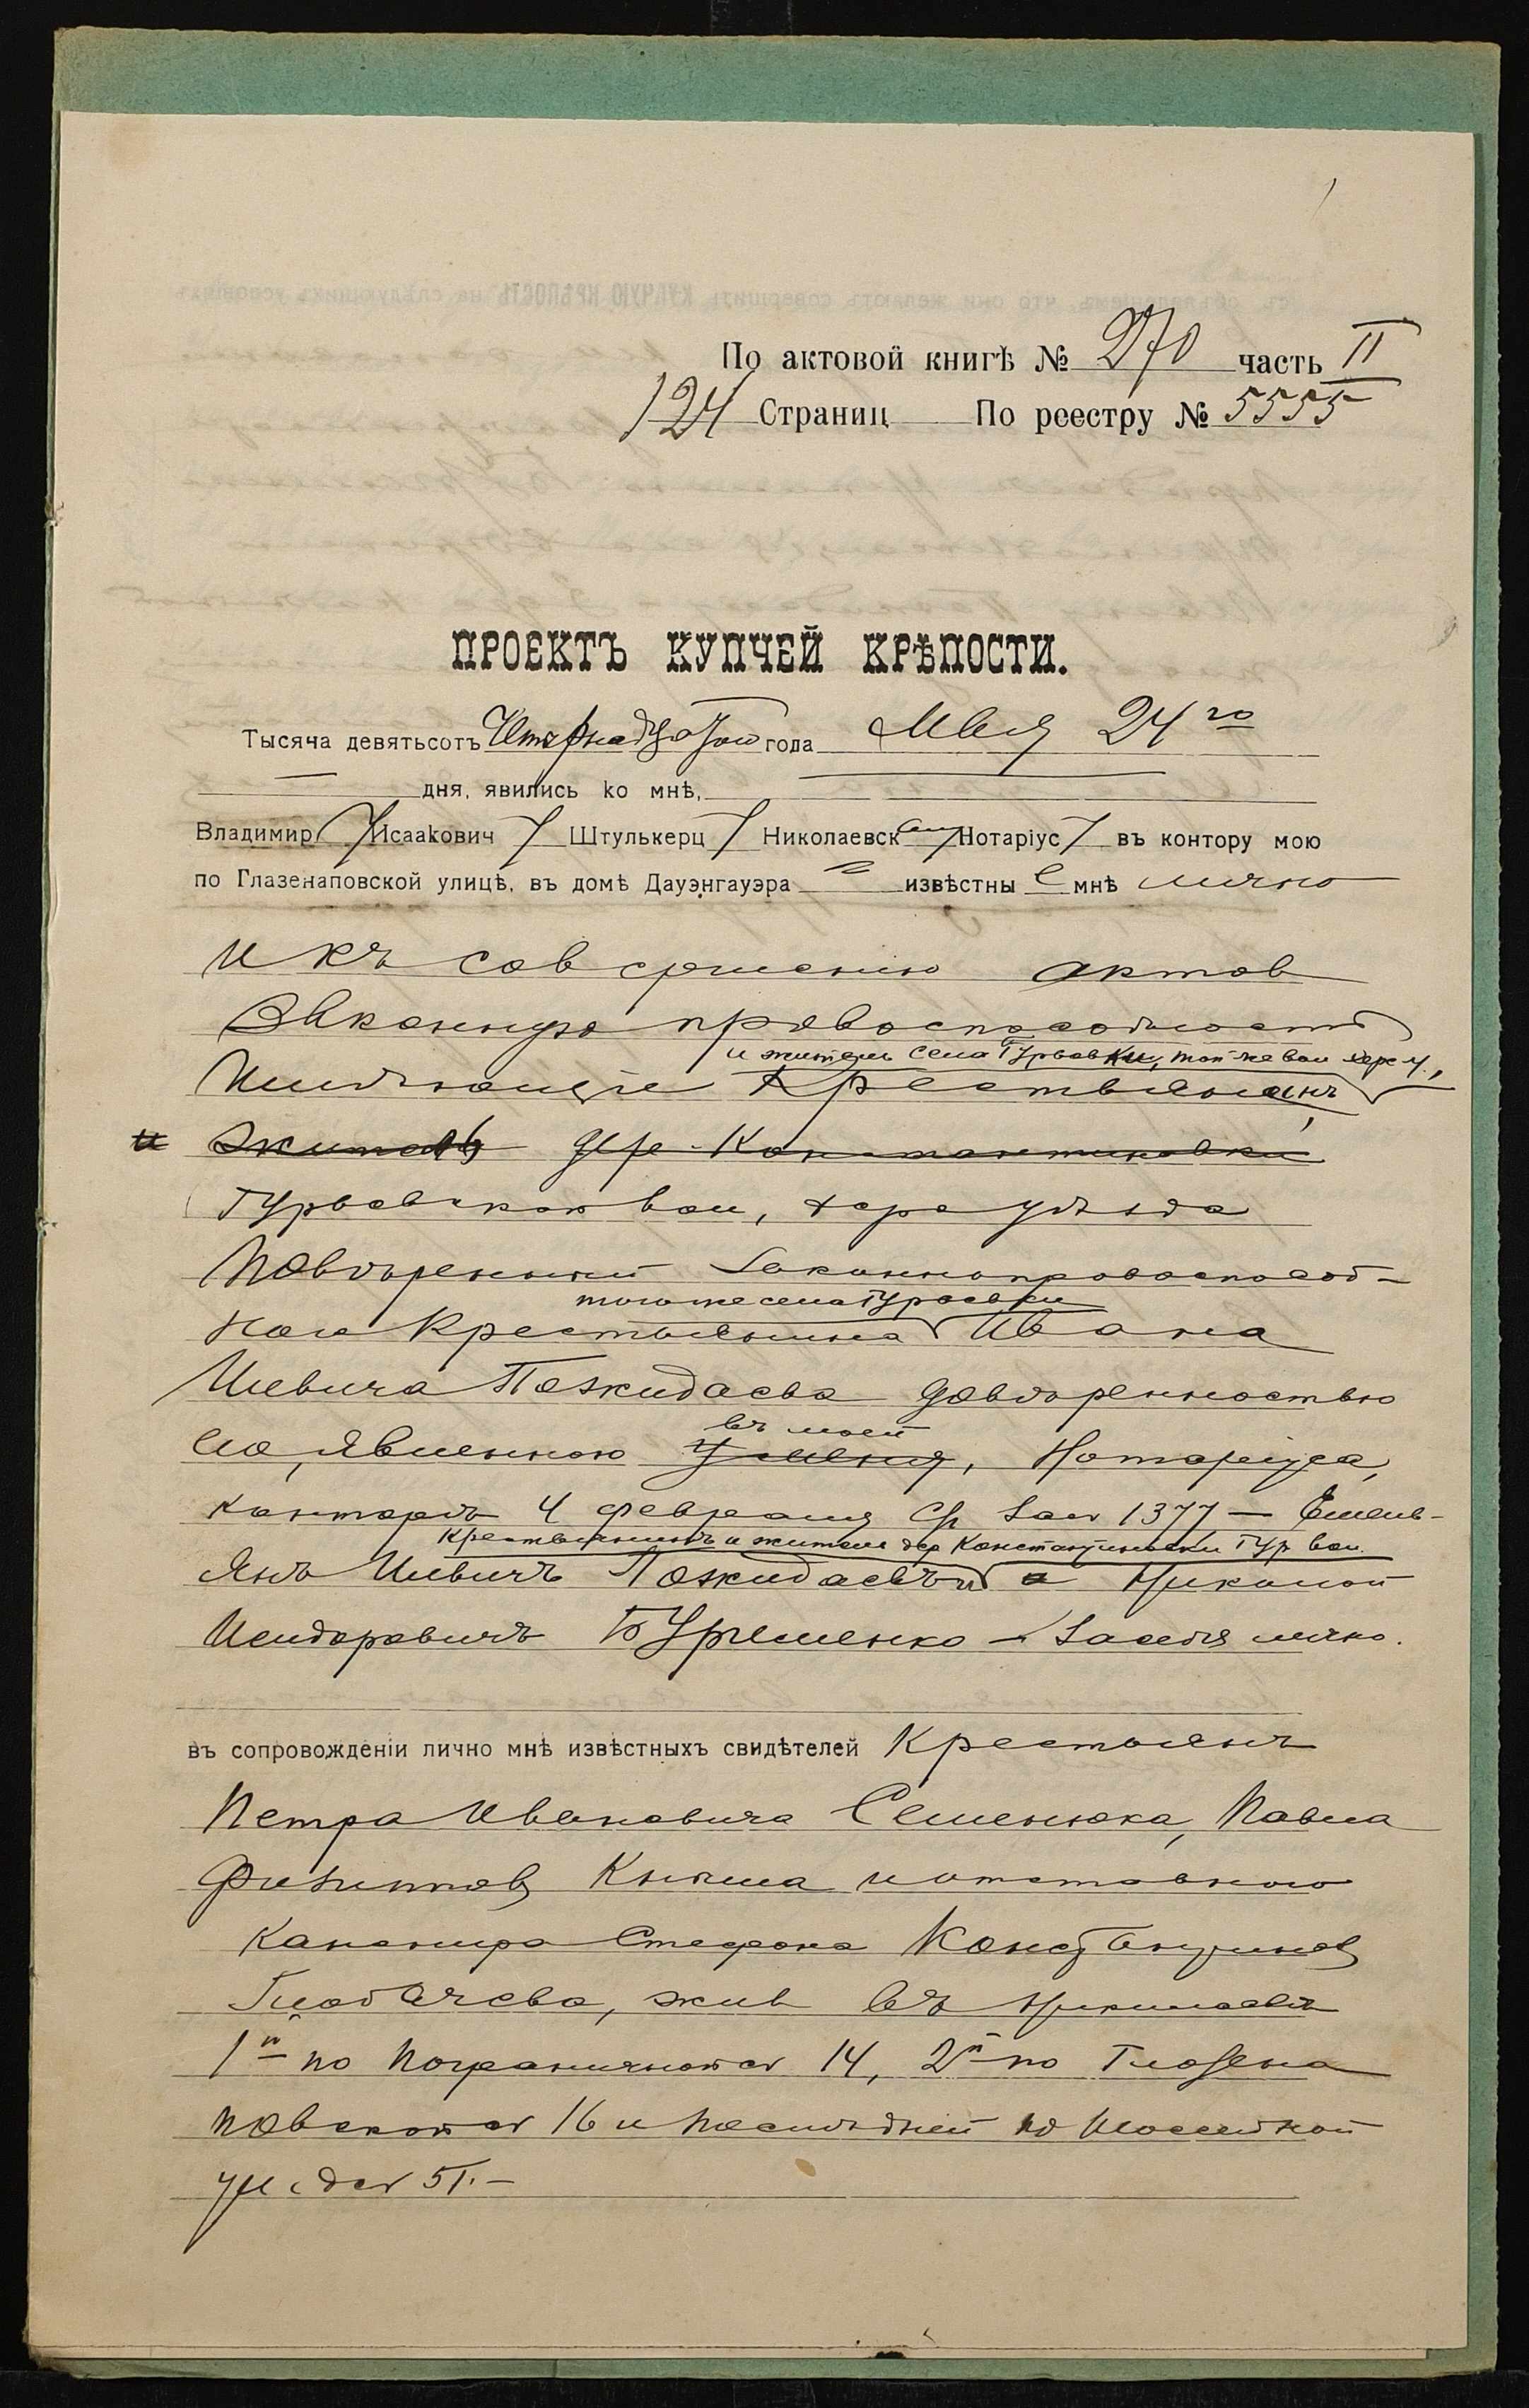 По актовой книгѣ № 270 часть II
124 Страниц По реестру № 5555
ПРОЕКТЪ КУПЧЕЙ КРѢПОСТИ.
Тысяча девятьсотъ Четырнадцатого года Мая 24 го
дня, явились ко мнѣ,
Владимир Исаакович Штулькерц Николаевск Нотаріус въ контору мою
по Глазенаповской улицѣ, въ домѣ Дауэнгауэра извѣстные мнѣ лично
и къ совершению актов
законную правоспособность
и житель села Гурьевки, той же вол Херс у.,
Имѣющіе Крестьянинъ
и житель дер. Константиновки
Гурьевской вол, Херс уѣзда
Повѣренный законноправоспособ-
того же села Гурьевки
ного Крестьянина Ивана
Ильича Пожидаева довѣренностью
въ моей
его, явленною у меня, Нотаріуса,
конторѣ 4 февраля сг за № 1377 — Емель-
Крестьянинъ и житель дер Константиновки Гур вол.
янъ Ильичъ Пожидаевъ и Николай
Исидоровичъ Бурлеменко — за себя лично.
въ сопровожденіи лично мнѣ извѣстныхъ свидѣтелей Крестьянъ
Петра Ивановича Семенюка, Павла
Филиппов и отставного
канонира Стефана Константинов
Глобачева, жив въ Николаевѣ
1й по Пограничной № 14, 2й по Глазена
повской № 16 и послѣдней по Шоссейной
ул д № 51.—